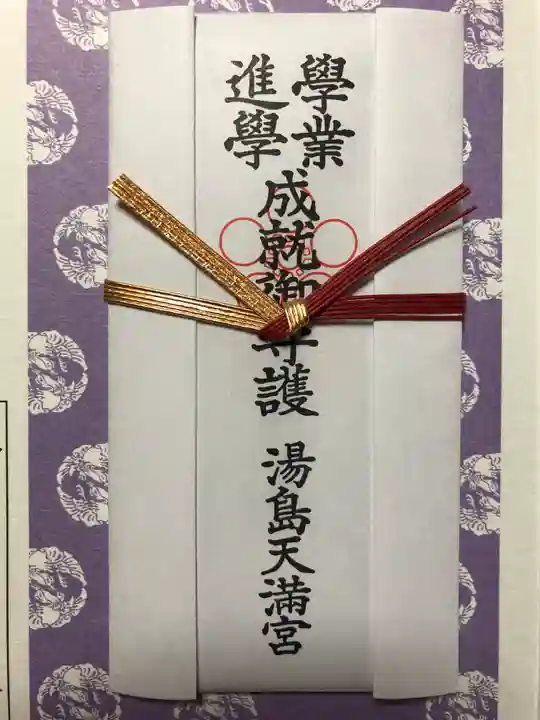 學業
進學
成就御守護
湯島天満宮